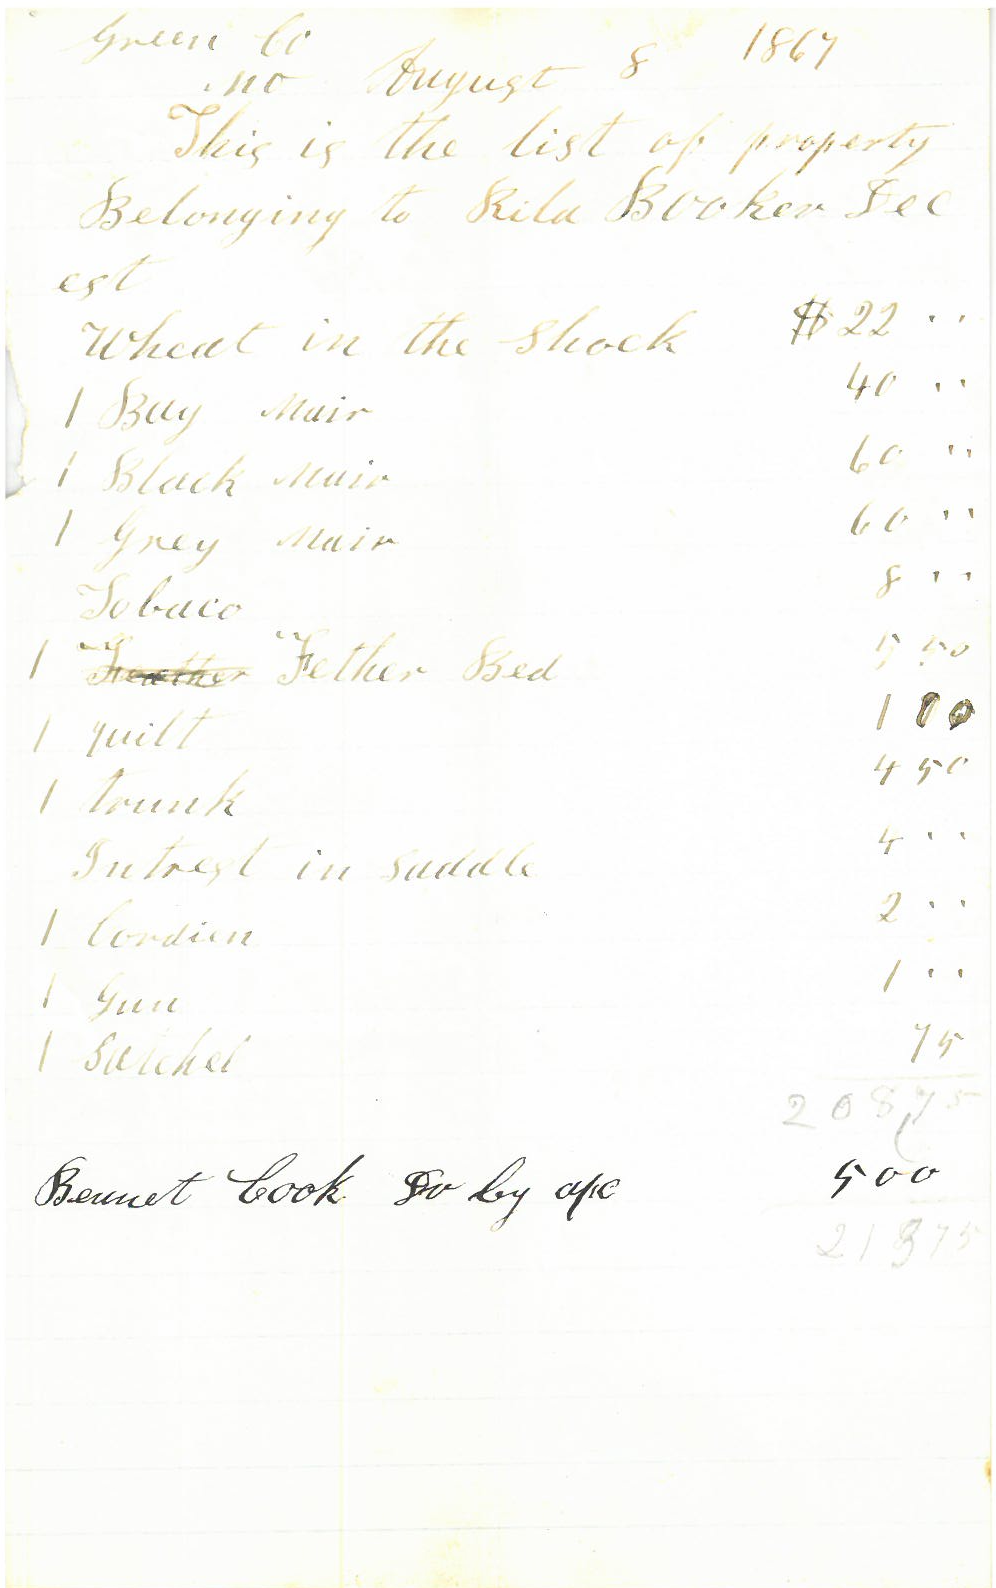 Green Co
Mo August 8 1867
This is the list of property
Belonging to Rila Booker Dec
est
Wheat in the Shock $ 22 ''
1 Bay Mair 40 ''
1 Black Mair 60 ''
1 Grey Mair 60 ''
Tobaco 8 ''
1 Feather Fether Bed 5 50
1 quilt 1 00
1 trunk 4 50
Intrest in Saddle 4 ''
1 Cordien 2 ''
1 Gun 1 ''
1 Satchel 75
208 75
Bennet Cook Do by a/c 5 00
213 75